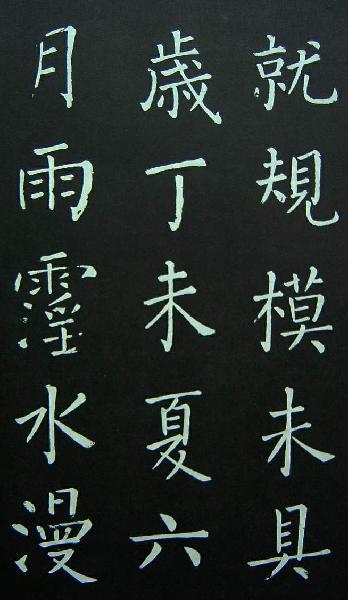 就規模未具
歲丁未夏六
月雨霪水漫